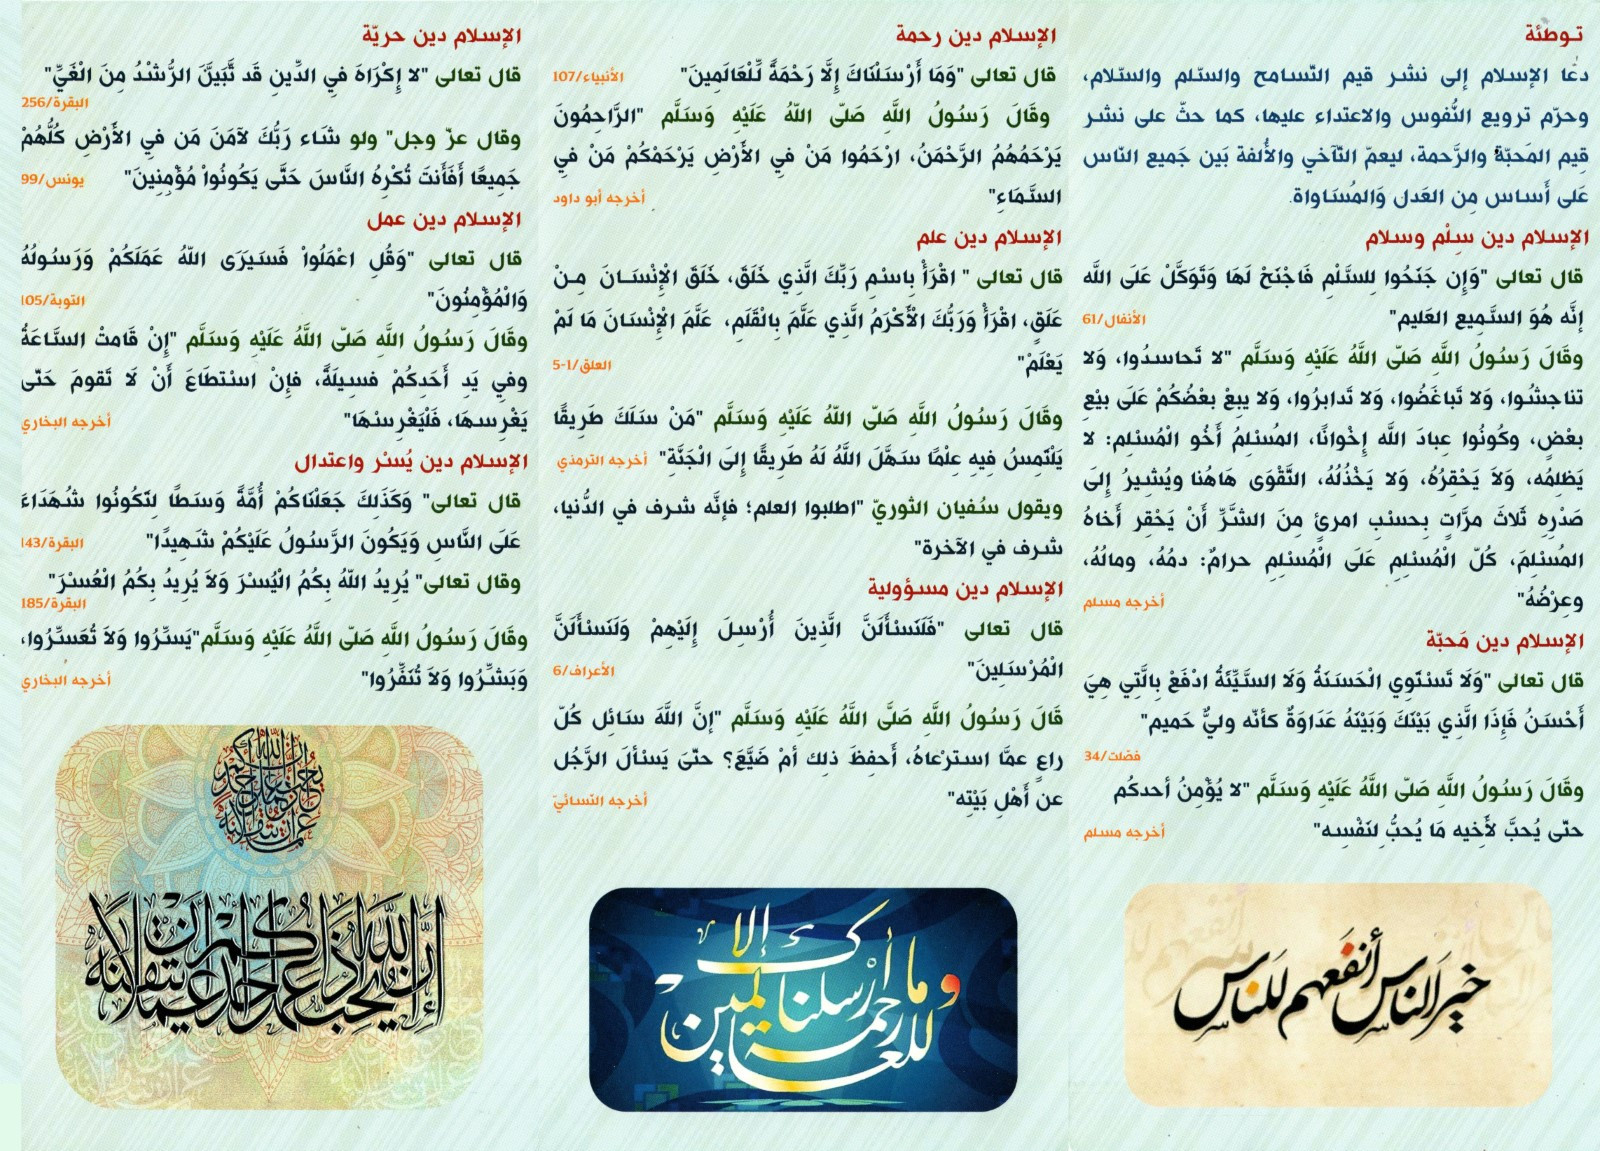 تـوطئة
دعا الإسلام إلى نشر قيم التّسامح والسّلم والسّلام،
وحرّم ترويع النُّفوس والاعتداء عليها، كما حثّ على نشر
قيم المَحبّة والرَّحمة، ليعمّ التّآخي والأُلفة بَين جَميع النّاس
عَلى أَساس مِن العَدل وَالمُسَاواة.
الإسلام دين سِلْم وسلام
قال تعالى "وَإِن جَنَحُوا لِلسَّلْمِ فَاجْنَحْ لَهَا وَتَوَكَّلْ عَلَى اللَّه
إنَّه هُوَ السَّميع العَليم" الأنفال/61
وقَالَ رَسُولُ اللَّهِ صَلّى اللَّهُ عَلَيْهِ وَسَلَّم "لا تَحاسدُوا، وَلا
تناجشُوا، وَلا تَباغَضُوا، وَلا تَدابرُوا، وَلا يبِعْ بعْضُكُمْ عَلَى بيْعِ
بعْضٍ، وكُونُوا عِبادَ اللَّه إِخْوانًا، المُسْلِمُ أَخُو الْمُسْلِم: لا
يَظلِمُه، وَلاَ يَحْقِرُهُ، وَلا يَخْذُلُهُ، التَّقْوَى هَاهُنا ويُشِيرُ إِلَى
صَدْرِه ثَلاثَ مرَّاتٍ بِحسْبِ امرئٍ مِنَ الشَّرِّ أَنْ يَحْقِر أَخاهُ
المُسْلِمَ، كُلّ الْمُسْلِمِ عَلَى الْمُسْلِمِ حرامٌ: دمُهُ، ومالُهُ،
وعِرْضُهُ" أخرجه مسلم
الإسلام دين مَحبّة
قال تعالى "وَلَا تَسْتَوِي الْحَسَنَةُ وَلَا السَّيِّئَةُ ادْفَعْ بِالَّتِي هِيَ
أَحْسَنُ فَإِذَا الَّذِي بَيْنَكَ وَبَيْنَهُ عَدَاوَةٌ كأنّه وليٌّ حَميم"
فصّلت/34
وقَالَ رَسُولُ اللَّهِ صَلّى اللَّهُ عَلَيْهِ وَسَلَّم "لا يُؤْمِنُ أحدكم
حتّى يُحبَّ لأَخيه مَا يُحبُّ لِنَفْسِه" أخرجه مسلم
خير الناس أنفعهم للناس
الإسلام دين رحمة
قال تعالى "وَمَا أَرْسَلْنَاكَ إِلَّا رَحْمَةً لِّلْعَالَمِينَ" الأنبياء/107
وقَالَ رَسُولُ اللَّهِ صَلّى اللّهُ عَلَيْهِ وَسَلَّم "الرَّاحِمُونَ
يَرْحَمُهُمُ الرَّحْمَنُ، ارْحَمُوا مَنْ فِي الأَرْضِ يَرْحَمْكُمْ مَنْ فِي
السَّمَاءِ" أخرجه أبو داود
الإسلام دين علم
قال تعالى " اقْرَأْ بِاسْمِ رَبِّكَ الَّذِي خَلَقَ، خَلَقَ الْإِنْسَـانَ مِـنْ
عَلَقٍ، اقْرَأْ وَرَبُّكَ الْأَكْرَمُ الَّذِي عَلَّمَ بِالْقَلَمِ، عَلَّمَ الْإِنْسَانَ مَا لَمْ
يَعْلَمْ" العلق/1-5
وقَالَ رَسُولُ اللَّهِ صَلّى اللّهُ عَلَيْهِ وَسَلَّم "مَنْ سَلَكَ طَرِيقًا
يَلْتَمِسُ فِيهِ عِلْمًا سَهَّلَ اللَّهُ لَهُ طَرِيقًا إِلَى الْجَنَّةِ" أخرجه الترمذي
ويقول سُفيان الثوريّ "اطلبوا العلم؛ فإنَّه شرف في الدُّنيا،
شرف في الآخرة"
الإسلام دين مسؤولية
قال تعالى "فَلَنَسْأَلَنَّ الَّذِينَ أُرْسِلَ إِلَيْهِمْ وَلَنَسْأَلَنَّ
الْمُرْسَلِينَ" الأعراف/6
قَالَ رَسُولُ اللَّهِ صَلَّى اللَّهُ عَلَيْهِ وَسَلَّم "إنَّ اللَّهَ سَائِل كُلّ
راعٍ عمَّا استرْعاهُ، أَحفِظَ ذلِك أمْ ضَيَّعَ؟ حتّىَ يَسْألَ الرَّجُل
عن أَهْلِ بَيْتِه" أخرجه النّسائيّ
وما أرسلناك إلا
رحمة للعالمين
الإسلام دين حريّة
قال تعالى "لا إِكْرَاهَ فِي الدِّينِ قَد تَّبَيَّنَ الرُّشْدُ مِنَ الْغَيِّ"
البقرة/256
وقال عزّ وجل" ولو شَاء رَبُّكَ لآمَنَ مَن فِي الأَرْضِ كُلُّهُمْ
جَمِيعًا أَفَأَنتَ تُكْرِهُ النَّاسَ حَتَّى يَكُونُواْ مُؤْمِنِينَ" يونس/99
الإسلام دين عمل
قال تعالى "وَقُلِ اعْمَلُواْ فَسَيَرَى اللّهُ عَمَلَكُمْ وَرَسُولُهُ
وَالْمُؤْمِنُونَ" التوبة/105
وقَالَ رَسُولُ اللَّهِ صَلّى اللَّهُ عَلَيْهِ وَسَلَّم "إِنْ قَامتْ السَّاعَةُ
وفي يَدِ أَحَدِكُمْ فسِيلَةً، فإنْ اسْتَطَاعَ أَنْ لَا تَقومَ حَتّى
يَغْرِسهَا، فَلْيَغْرِسْهَا" أخرجه البخاري
الإسلام دين يُسْر واعتدال
قال تعالى" وَكَذَلِكَ جَعَلْنَاكُمْ أُمَّةً وَسَطًا لِتَكُونُوا شُهَدَاءَ
عَلَى النَّاسِ وَيَكُونَ الرَّسُولُ عَلَيْكُمْ شَهِيدًا" البقرة/143
وقال تعالى" يُرِيدُ اللّهُ بِكُمُ الْيُسْرَ وَلاَ يُرِيدُ بِكُمُ الْعُسْرَ"
البقرة/185
وقَالَ رَسُولُ اللَّهِ صَلّى اللَّهُ عَلَيْهِ وَسَلَّم"يَسِّرُوا وَلاَ تُعَسِّرُوا،
وَبَشِّرُوا وَلاَ تُنَفِّرُوا" أخرجه البخاري
إن الله يحب إذا عمل أحدكم عملا أن يتقنه